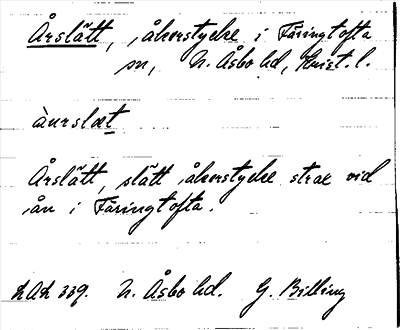 Årslätt, åkerstycke i Färingtofta
sn, N. Åsbo hd, Krist. l.
àurslæt
Årslätt, slätt åkerstycke strax vid
ån i Färingtofta.
LAL 339. N. Åsbo hd. G. Billing